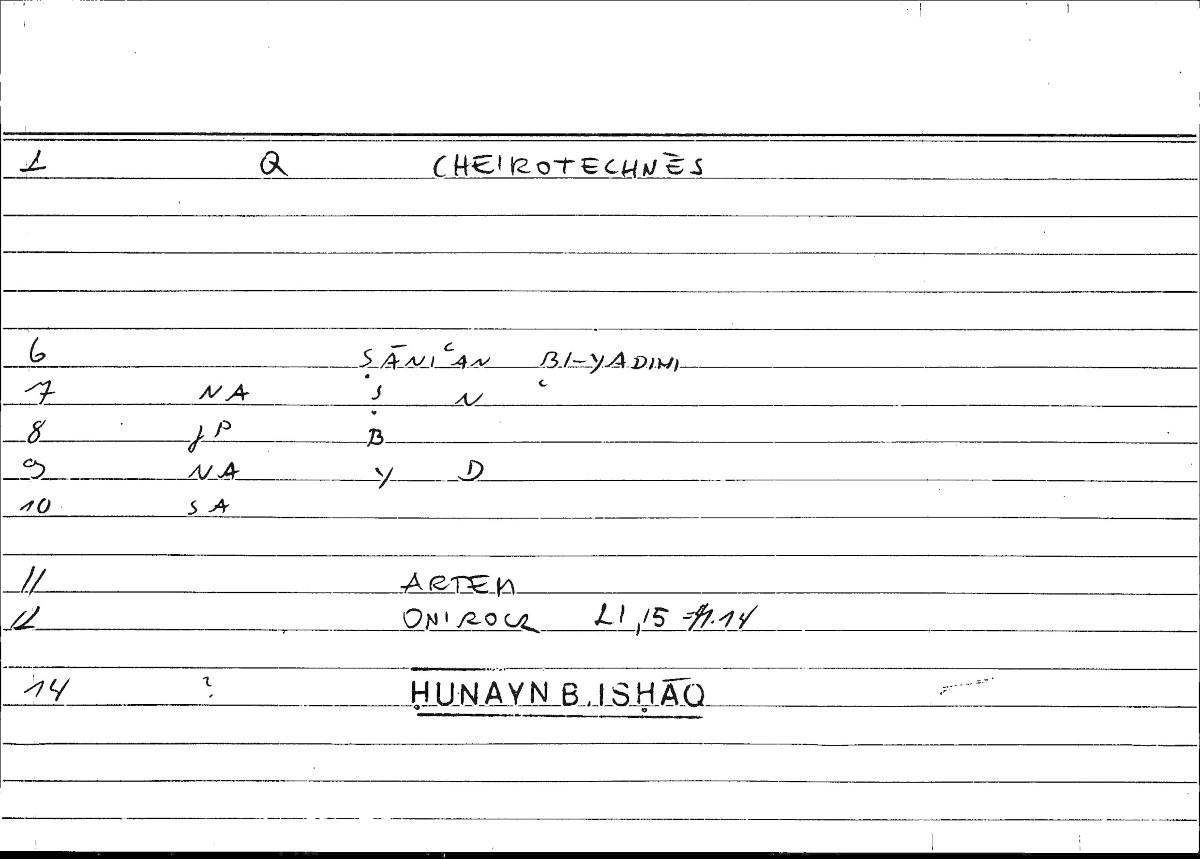 1 Q CHEIROTECHNĒS
6 ṢĀNIʿAN BI-YADIHI
7 NA Ṣ N ʿ
8 JP B
9 NA Y D
10 SA
11 ARTEM
12 ONIROCR 51,15 = 14
14 ? ḤUNAYN B. ISḤĀQ